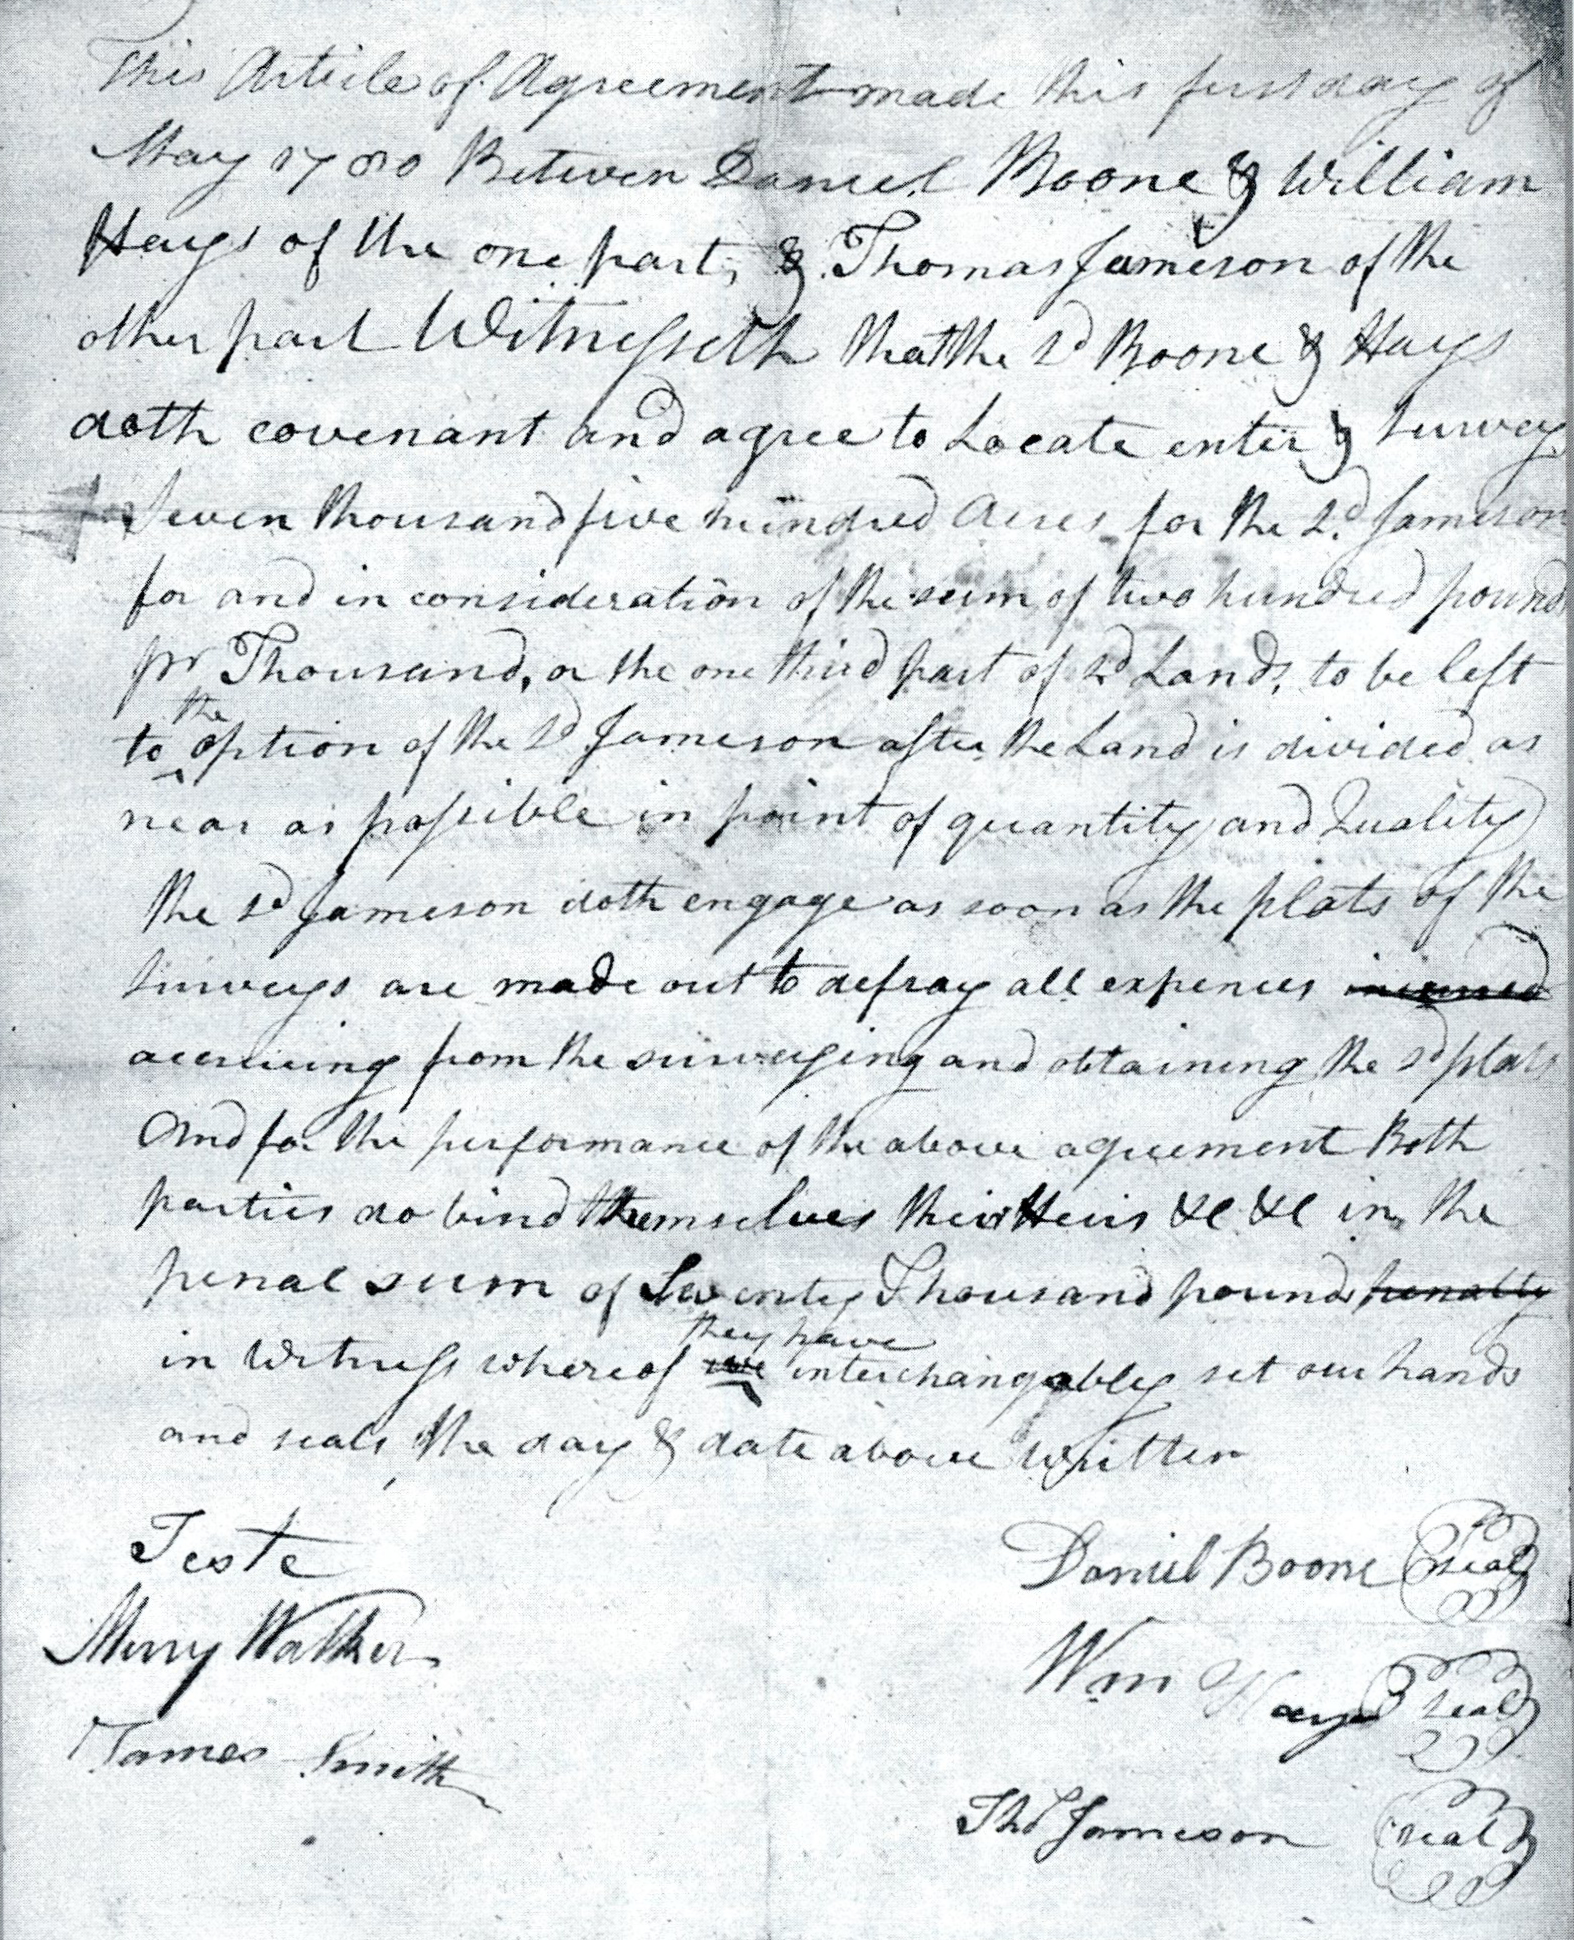 This Article of Agreement made this first day of
May 1780 Between Daniel Boone & William
Hays of the one part, & Thomas Jameson of the
other part Witnesseth that the sd Boone & Hays
doth covenant and agree to Locate enter & Survey
Seven thousand five hundred Acres for the sd. Jameson
for and in consideration of the sum of two hundred pounds
pr Thousand, or the one third part of sd Lands, to be left
to the option of the sd Jameson after the Land is divided as
near as possible in point of quantity and Quality
the sd Jameson doth engage as soon as the plats of the
Surveys are made out to defray all expences incurred
accruing from the surveying and obtaining the sd plats
And for the performance of the above agreement Both
parties do bind themselves their Heirs &c &c in the
penal sum of Seventy Thousand pounds penalty
they have
in Witness whereof we interchangably set our hands
and seals the day & date above written
Teste
Merry Walker
James Smith
Daniel Boone seal
Wm Hays seal
Thos Jameson seal